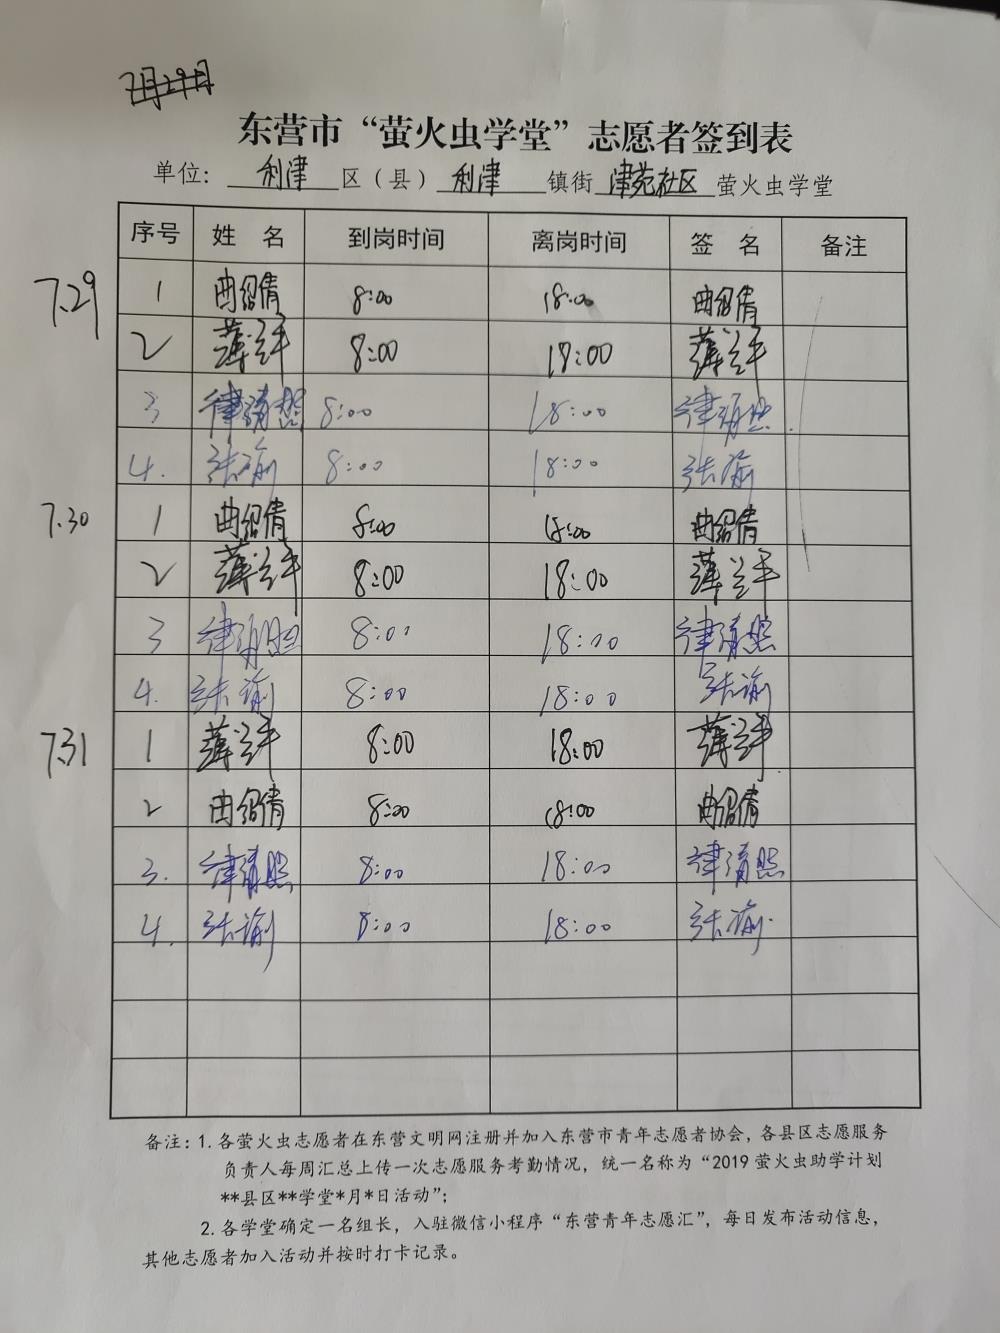 7月29日
东营市“萤火虫学堂”志愿者签到表
单位： 利津 区（县） 利津 镇街 津苑社区 萤火虫学堂
序号 姓 名 到岗时间 离岗时间 签 名 备注
7.29 1 曲绍倩 8:00 18:00 曲绍倩
2 薄兰平 8:00 18:00 薄兰平
3 律清照 8:00 18:00 律清照
4. 张瑜 8:00 18:00 张瑜
7.30 1 曲绍倩 8:00 18:00 曲绍倩
2 薄兰平 8:00 18:00 薄兰平
3 律清照 8:00 18:00 律清照
4. 张瑜 8:00 18:00 张瑜
7.31 1 薄兰平 8:00 18:00 薄兰平
2 曲绍倩 8:00 18:00 曲绍倩
3. 律清照 8:00 18:00 律清照
4. 张瑜 8:00 18:00 张瑜
备注：1.各萤火虫志愿者在东营文明网注册并加入东营市青年志愿者协会，各县区志愿服务
负责人每周汇总上传一次志愿服务考勤情况，统一名称为“2019萤火虫助学计划
**县区**学堂*月*日活动”；
2.各学堂确定一名组长，入驻微信小程序“东营青年志愿汇”，每日发布活动信息，
其他志愿者加入活动并按时打卡记录。